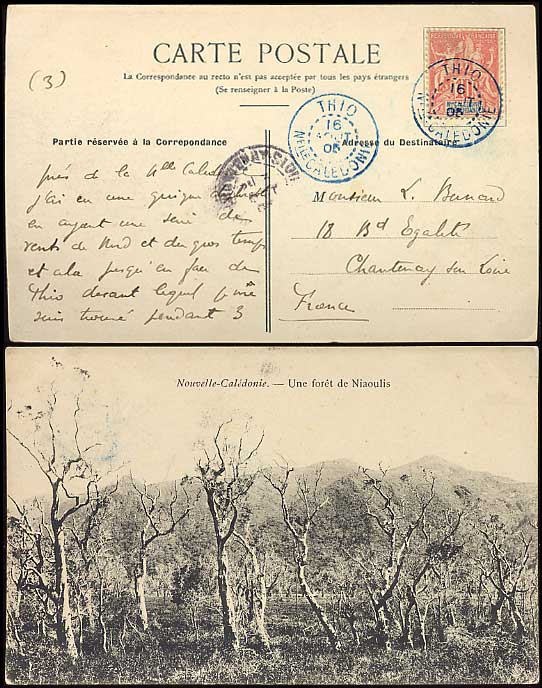 CARTE POSTALE
La Correspondance au recto n'est pas acceptée par tous les pays étrangers
(Se renseigner à la Poste)
(3)
RÉPUBLIQUE FRANÇAISE
THIO
16
05
NLLE CALÉDONIE
THIO
16
05
NLLE CALÉDONIE
Partie réservée à la Correpondance
Adresse du Destinataire
près de la Nlle Caled
j'ai eu une
en ayant une série de
vents de Nord et du gros temps
et a la jusqu'en face de
Thio devant lequel je me
suis trouvé pendant 3
Monsieur L. Bernard
18 Bd Egalité
Chantenay sur Loire
France
Nouvelle-Calédonie. — Une forêt de Niaoulis